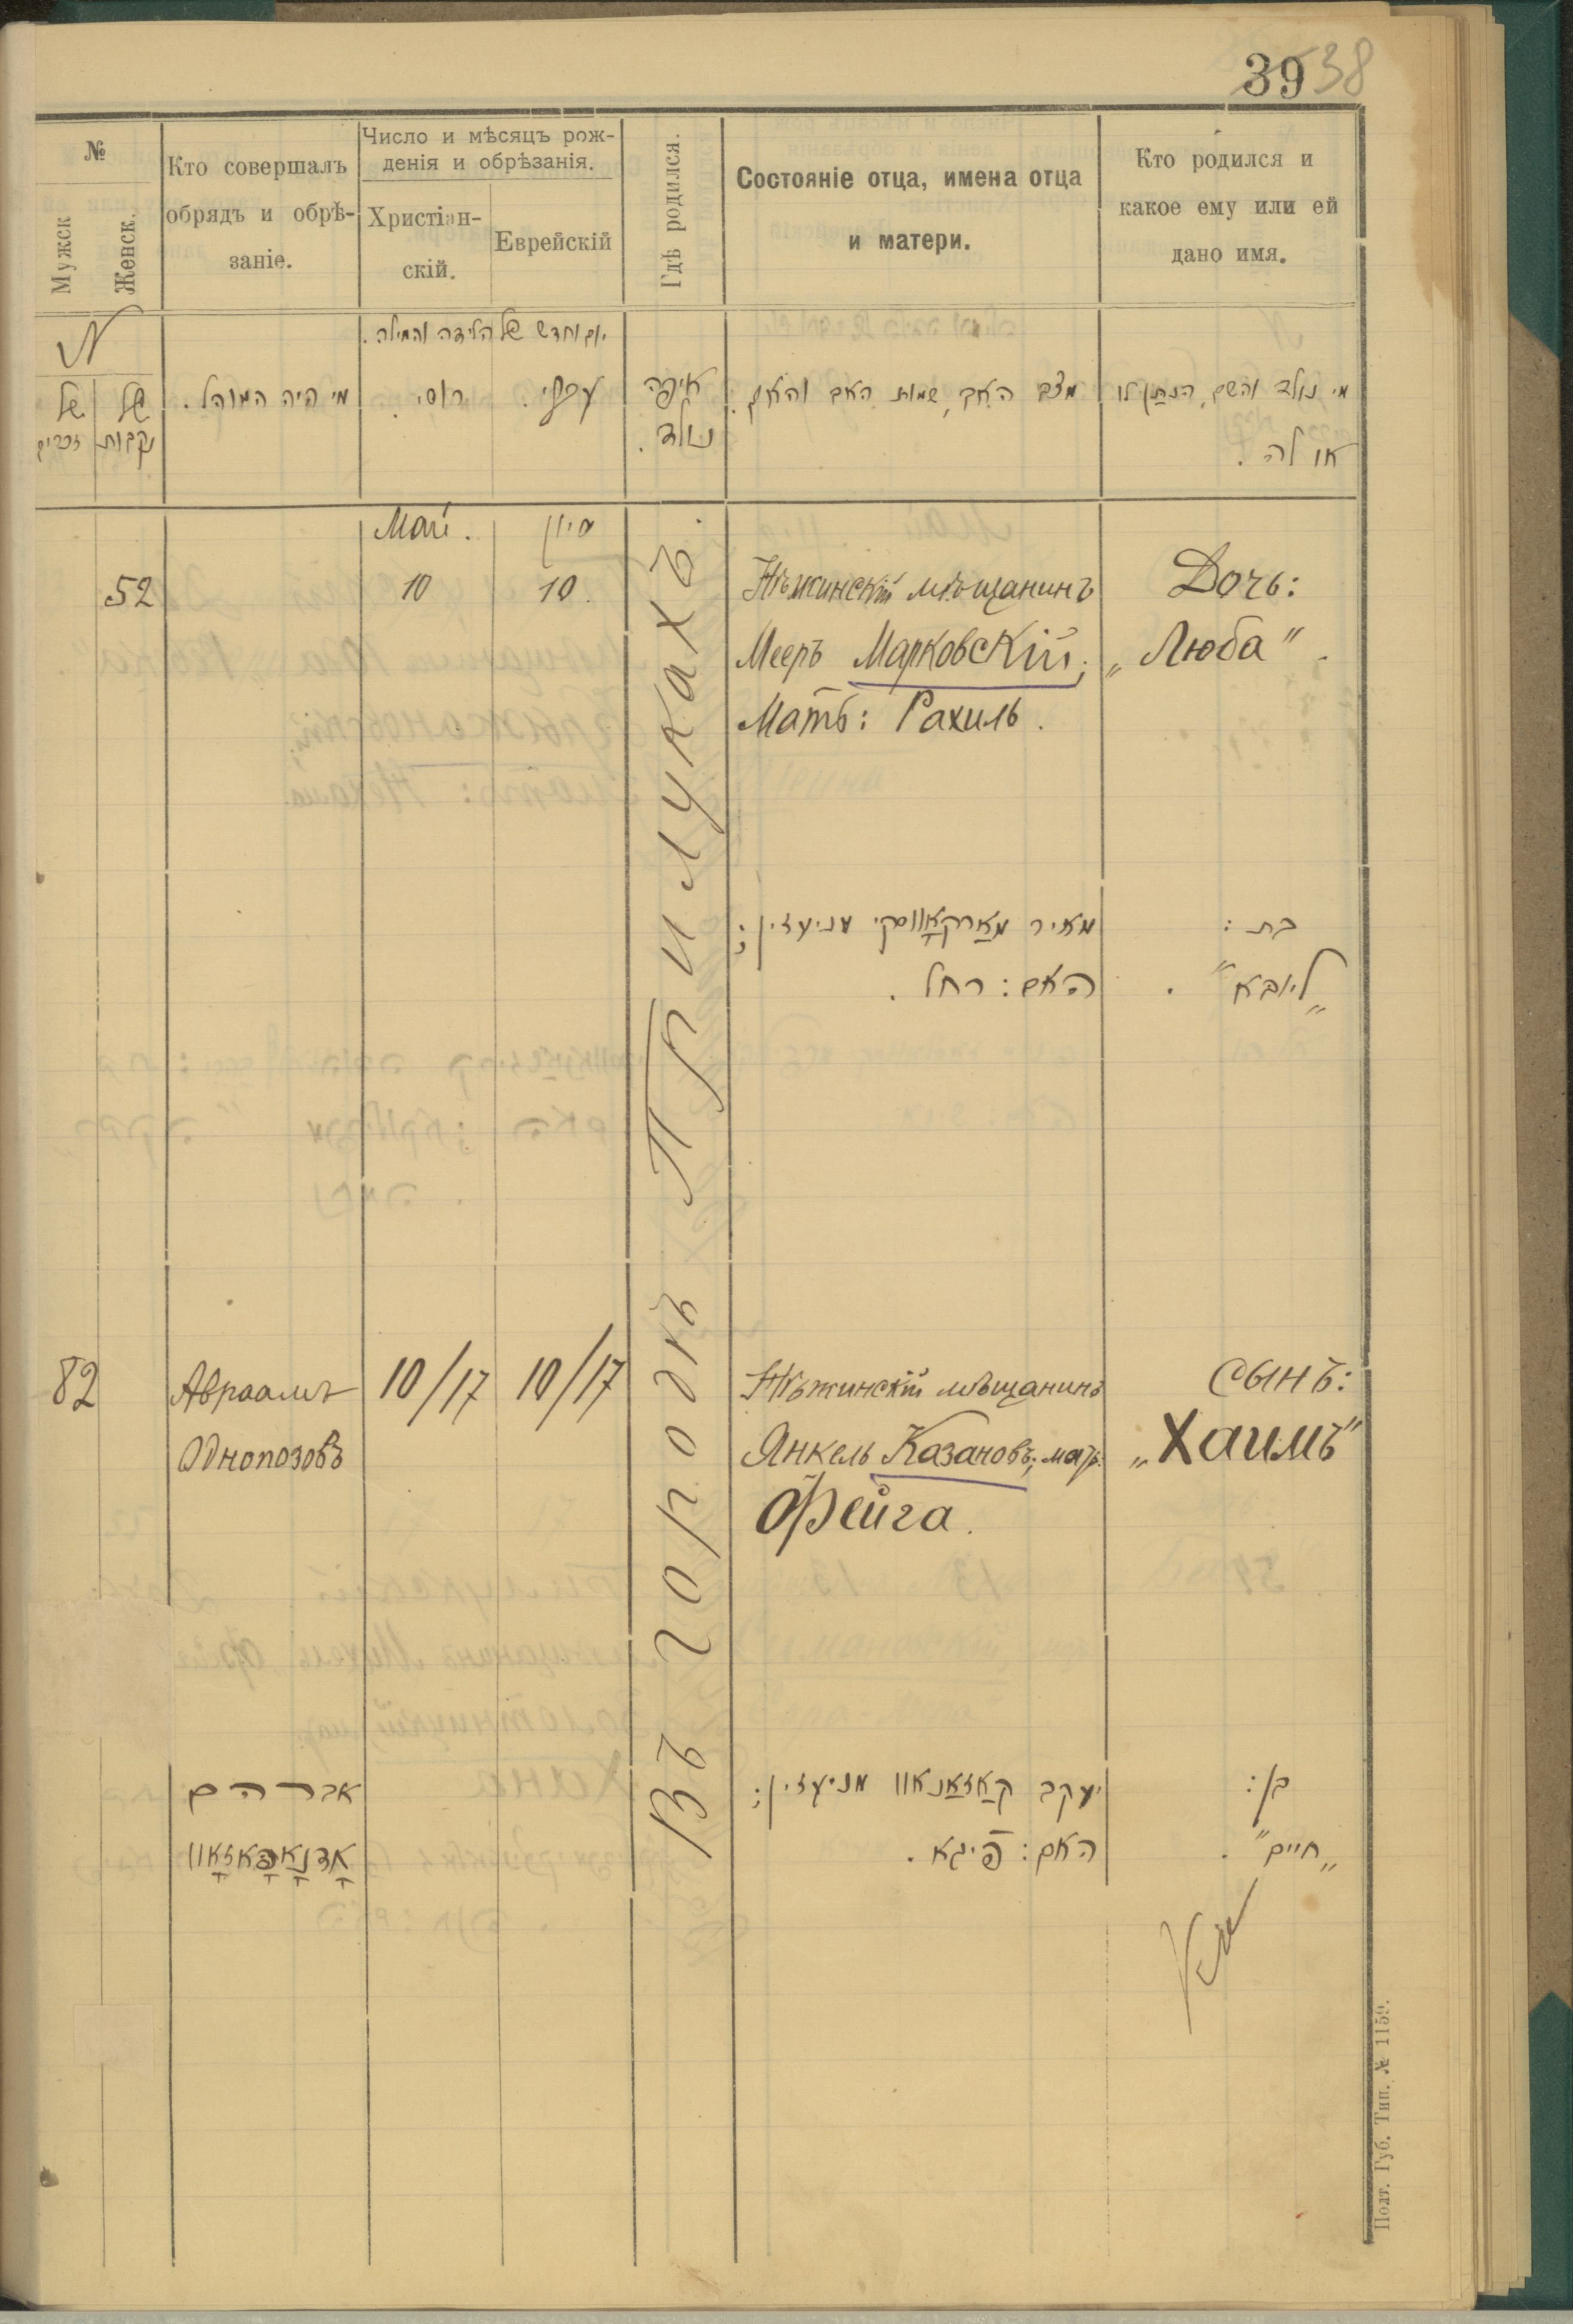 39 38
№
Мужск
Женск.
Кто совершалъ
обрядъ и обрѣ-
заніе.
Число и мѣсяцъ рож-
денія и обрѣзанія.
Христіан-
скій.
Еврейскій
Гдѣ родился.
Состояніе отца, имена отца
и матери.
Кто родился и
какое ему или ей
дано имя.
N
של זכרים
של נקבות
מי היה המוהל.
יום וחדש של הלידה והמילה.
רוסי.
עברי.
איפה
נולד.
מצב האב, שמות האב והאם.
מי נולד והשם הנתן לו
או לה.
Май.
סיון
52
10
10.
Въ городѣ Прилукахъ.
Нѣжинскій мѣщанинъ
Мееръ Марковскій;
Мать: Рахиль.
Дочь:
„Люба".
מאיר מארקאווסקי מניעזין;
האם: רחל.
בת:
„ליובא".
82
Авраамъ
Однопозовъ
10/17
10/17
Нѣжинскій мѣщанинъ
Янкель Казановъ; мать
Фейга.
Сынъ:
„Хаимъ"
אברהם
אדנאפאזאוו
יעקב קאזאנאוו מניעזין;
האם: פיגא.
בן:
„חיים".
Полт. Губ. Тип. № 1159.